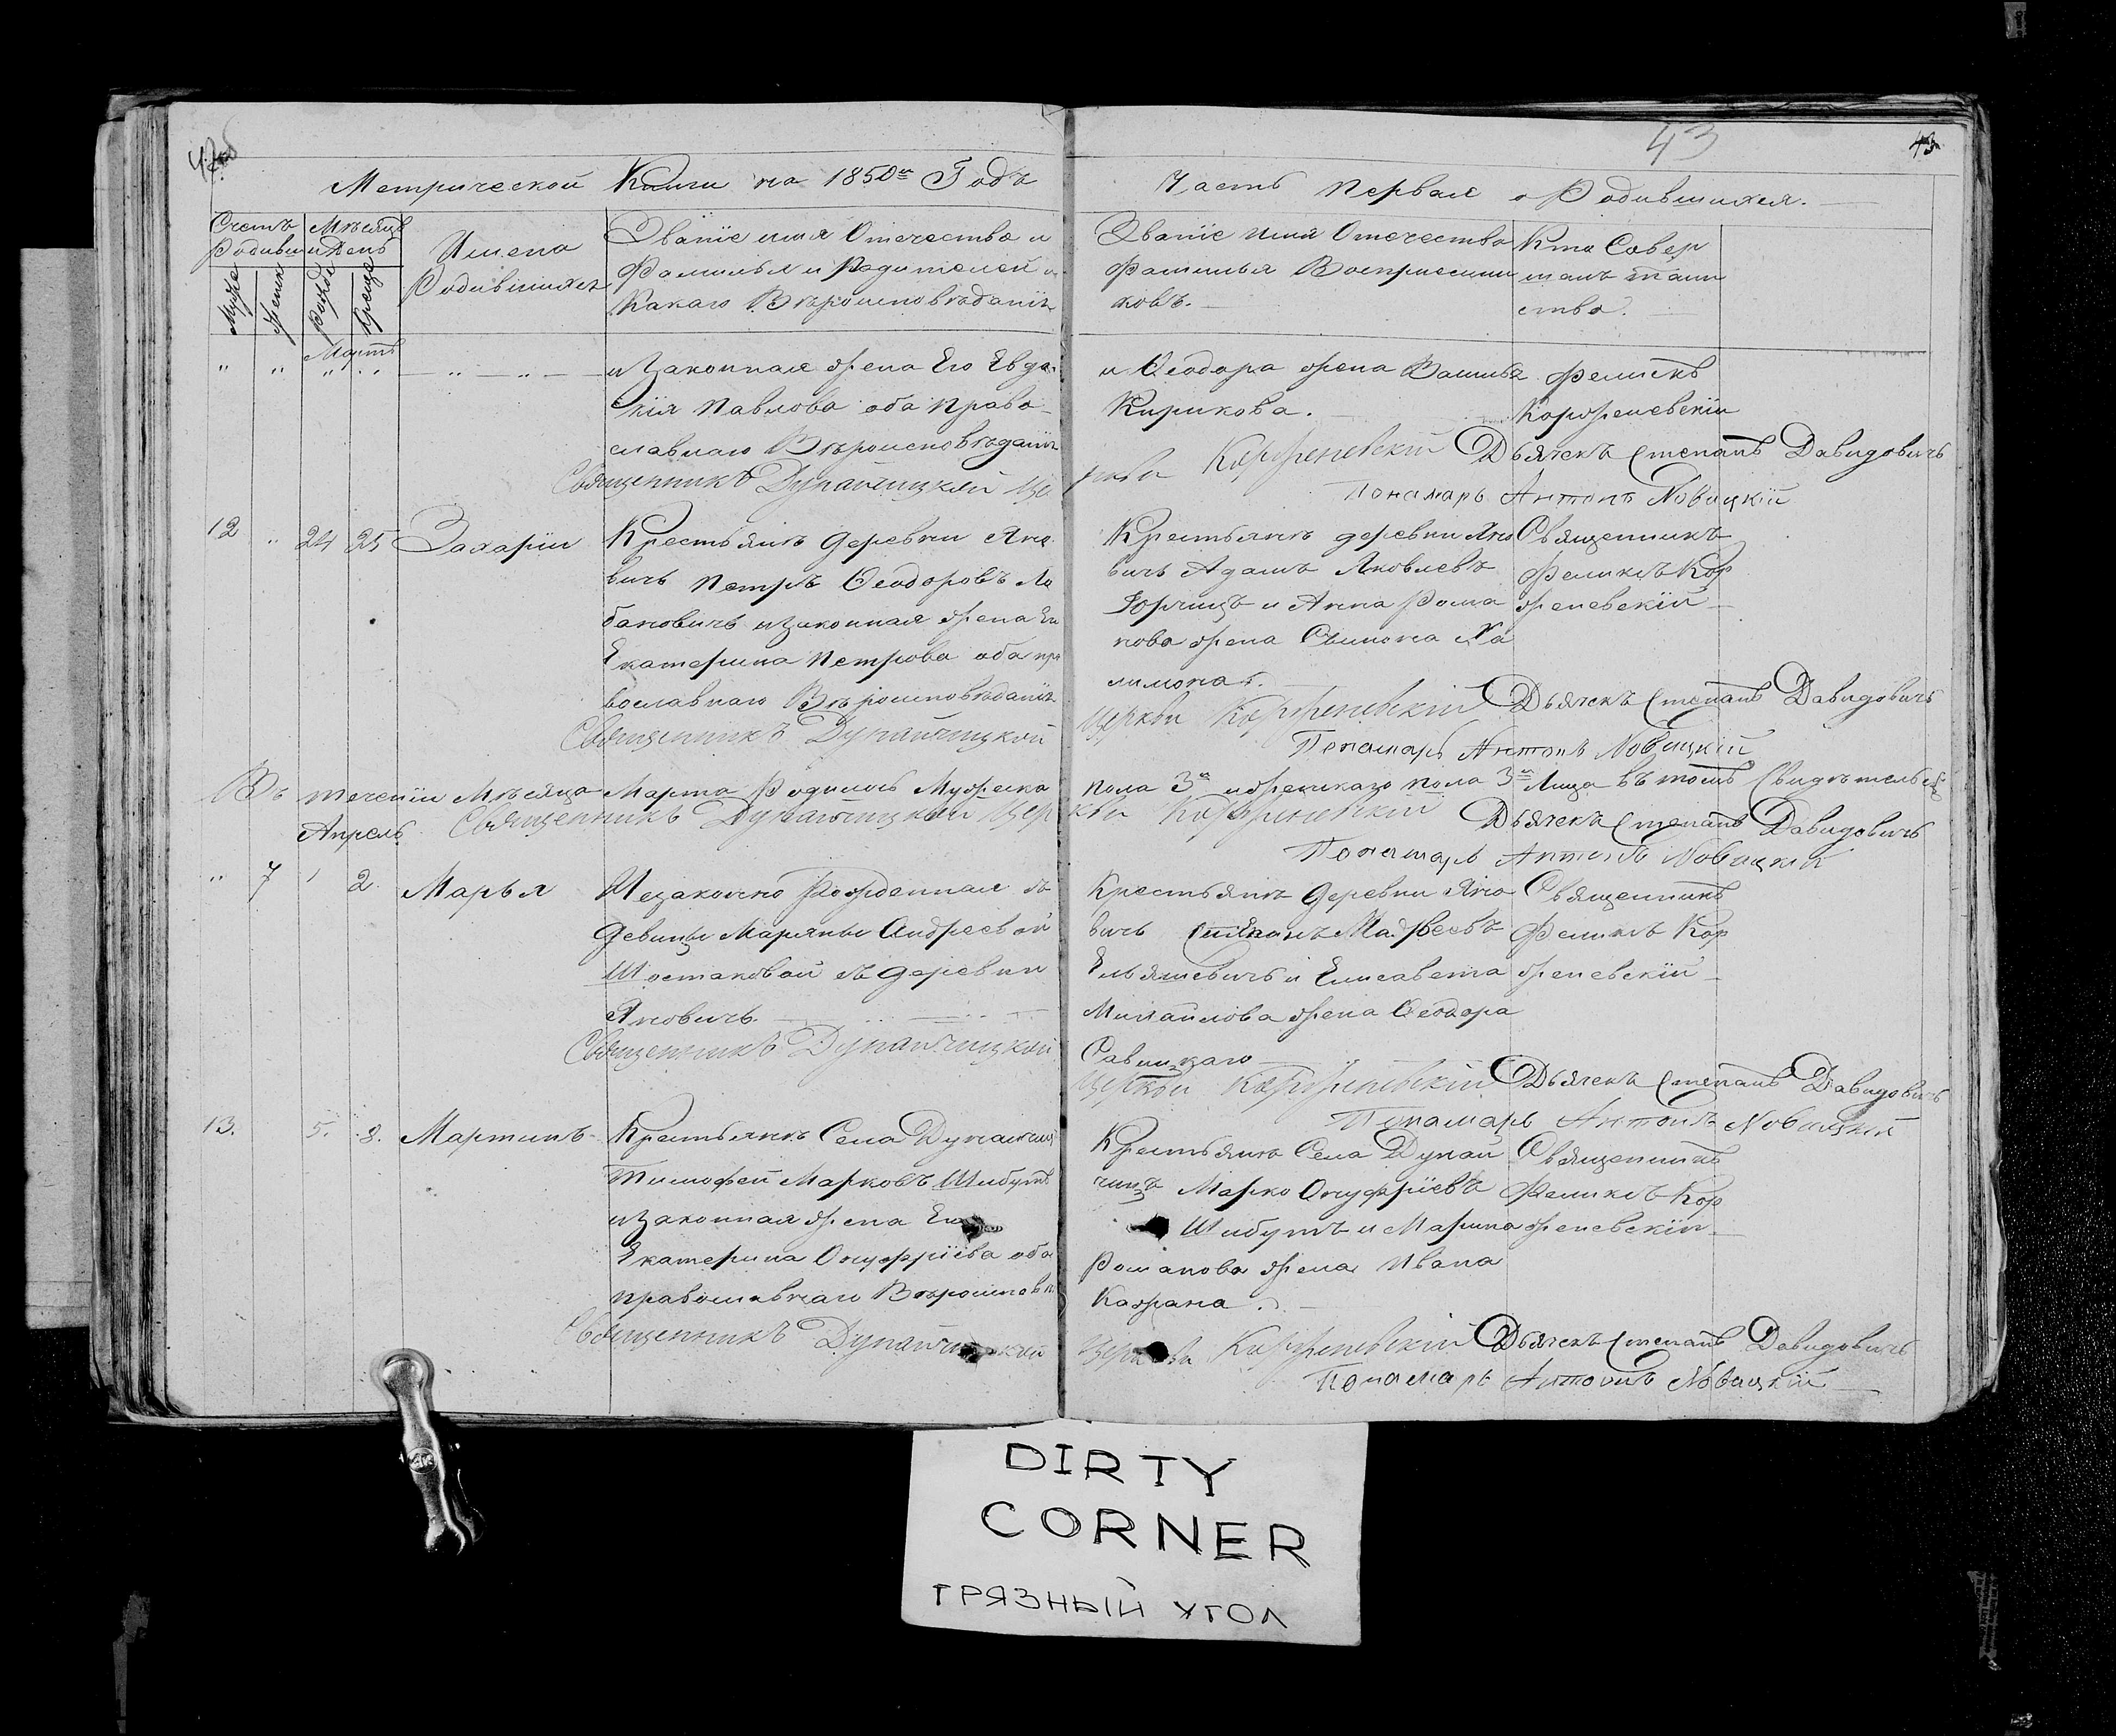 43
43
Метрической Книги на 1850й Годъ
Часть Первая о Родившихся.
Счетъ Родивши
Мѣсяцъ и День
Муже
Женск
Рожде
Креще
Имена
Родившихся
Званїе имя Отечество и
Фамилья и Родителей и
Какаго Вѣроисповѣданїя
Званїе имя Отечество
Фамилья Воспрїемни
ковъ.
Кто Совер
шалъ таин
ство.
Мартъ
и законная жена Его Евдо
кїя Павлова оба право
славнаго Вѣроисповѣданїя
и Ѳеодора жена Василья
Кирикова.
Феликсъ
Корженевскїй
Священникъ Дунайчицкой Це
ркви Корженевскїй Дьячекъ Степанъ Давидовичъ
Понамарь Антонъ Новицкїй
12 " 24 25 Захарїй
Крестьянъ деревни Яно
вичь Петръ Ѳеодоровъ Ло
бановичь и законная жена Ег
Екатерина Петрова оба пра
вославнаго Вѣроисповѣданїя
Крестьянъ деревни Яно
вичь Адамъ Яковлевъ
и Анна Рома
нова жена Сымона Ха
лимона.
Священникъ
Феликсъ Кор
женевскїй
Священникъ Дунайчицкой
Церкви Корженевскїй Дьячекъ Степанъ Давидовичъ
Понамарь Антонъ Новицкїй
Въ теченїи Мѣсяца Марта Родилось Мужеска
пола 3 и женскаго пола 3 Лица въ томъ Свидѣтельс
Священникъ Дунайчицкой Цер
кви Корженевскїй Дьячекъ Степанъ Давидовичъ
Понамарь Антонъ Новицкїй
Апрель
" 7 1 2 Марья
Незаконно Рожденная съ
девицы Марьяны Андреевой
Шостаковой съ деревни
Яновичь.
Крестьянъ деревни Яно
вичь Матфеевъ
Ельяшевичь и Елисавета
Михайлова жена Ѳеодора
Савицкаго
Священникъ
Феликсъ Кор
женевскїй
Священникъ Дунайчицкой
Церкви Корженевскїй Дьячекъ Степанъ Давидовичъ
Понамарь Антонъ Новицкїй
13. 5. 8. Мартинъ
Крестьянъ Села Дунайчиц
Тимофей Марковъ Шибутъ
и законная жена Ег
Екатерина Онуфрїева оба
православнаго Вѣроисповѣ
Крестьянъ Села Дунай
чицъ Марко Онуфрїевъ
Шибутъ и Марина
Романова жена Ивана
Кажана.
Священникъ
Феликсъ Кор
женевскїй
Священникъ Дунайчицкой
Церкви Корженевскїй Дьячекъ Степанъ Давидовичъ
Понамарь Антонъ Новицкїй
DIRTY
CORNER
ГРЯЗНЫЙ УГОЛ